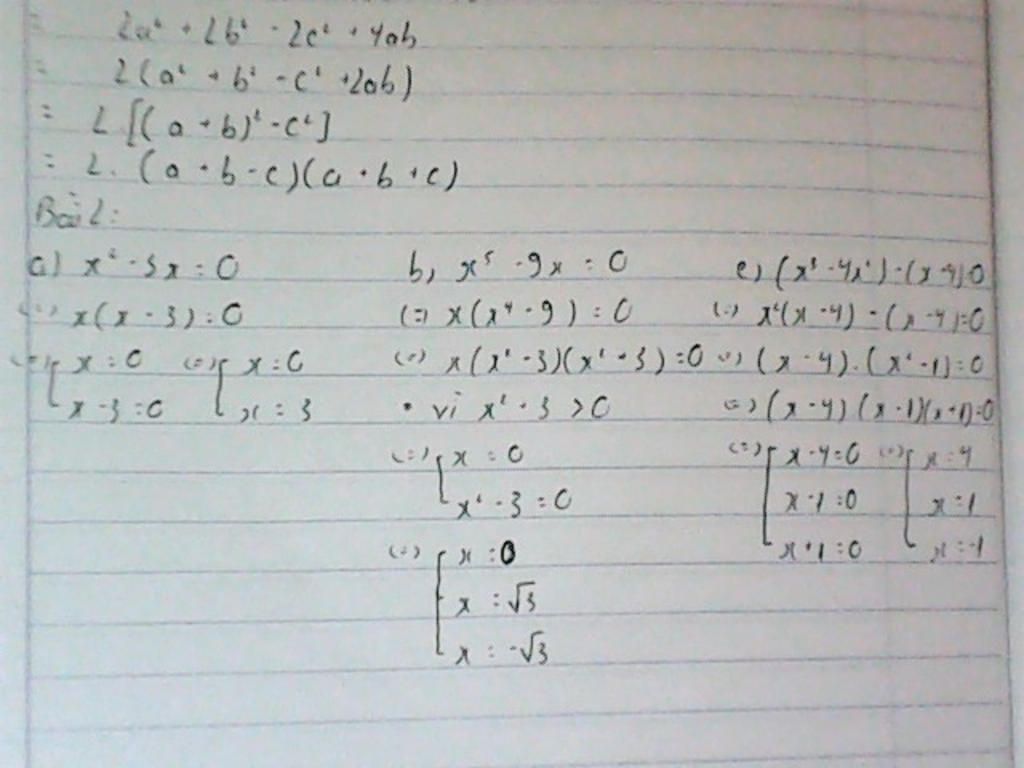 = 2a² + 2b² - 2c² + 4ab
= 2(a² + b² - c² + 2ab)
= 2[(a + b)² - c²]
= 2. (a + b - c)(a + b + c)
Bài 2:
a) x² - 3x = 0
(=) x(x - 3) = 0
(=) [x = 0
x - 3 = 0
(=) [x = 0
x = 3
b, x⁵ - 9x = 0
(=) x(x⁴ - 9) = 0
(=) x(x² - 3)(x² + 3) = 0
• vì x² + 3 > 0
(=) [x = 0
x² - 3 = 0
(=) [x = 0
x = √3
x = -√3
e, (x³ - 4x²) - (x - 4) = 0
(=) x²(x - 4) - (x - 4) = 0
(=) (x - 4).(x² - 1) = 0
(=) (x - 4)(x - 1)(x + 1) = 0
(=) [x - 4 = 0
x - 1 = 0
x + 1 = 0
(=) [x = 4
x = 1
x = -1